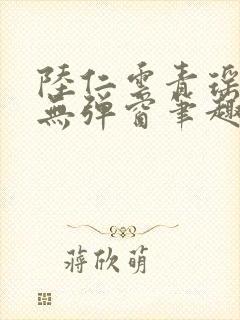 陸仁雲青瑤
無彈窗筆趣
蔣欣萌